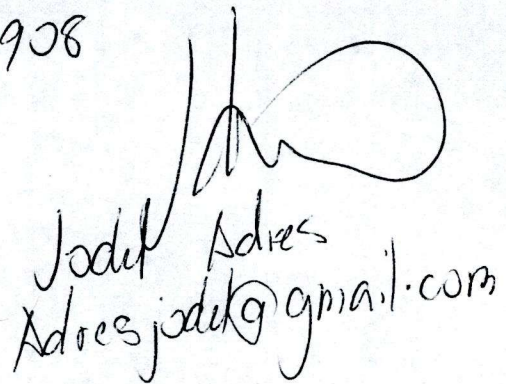 908
Jodel Adres
Adresjodel@gmail.com